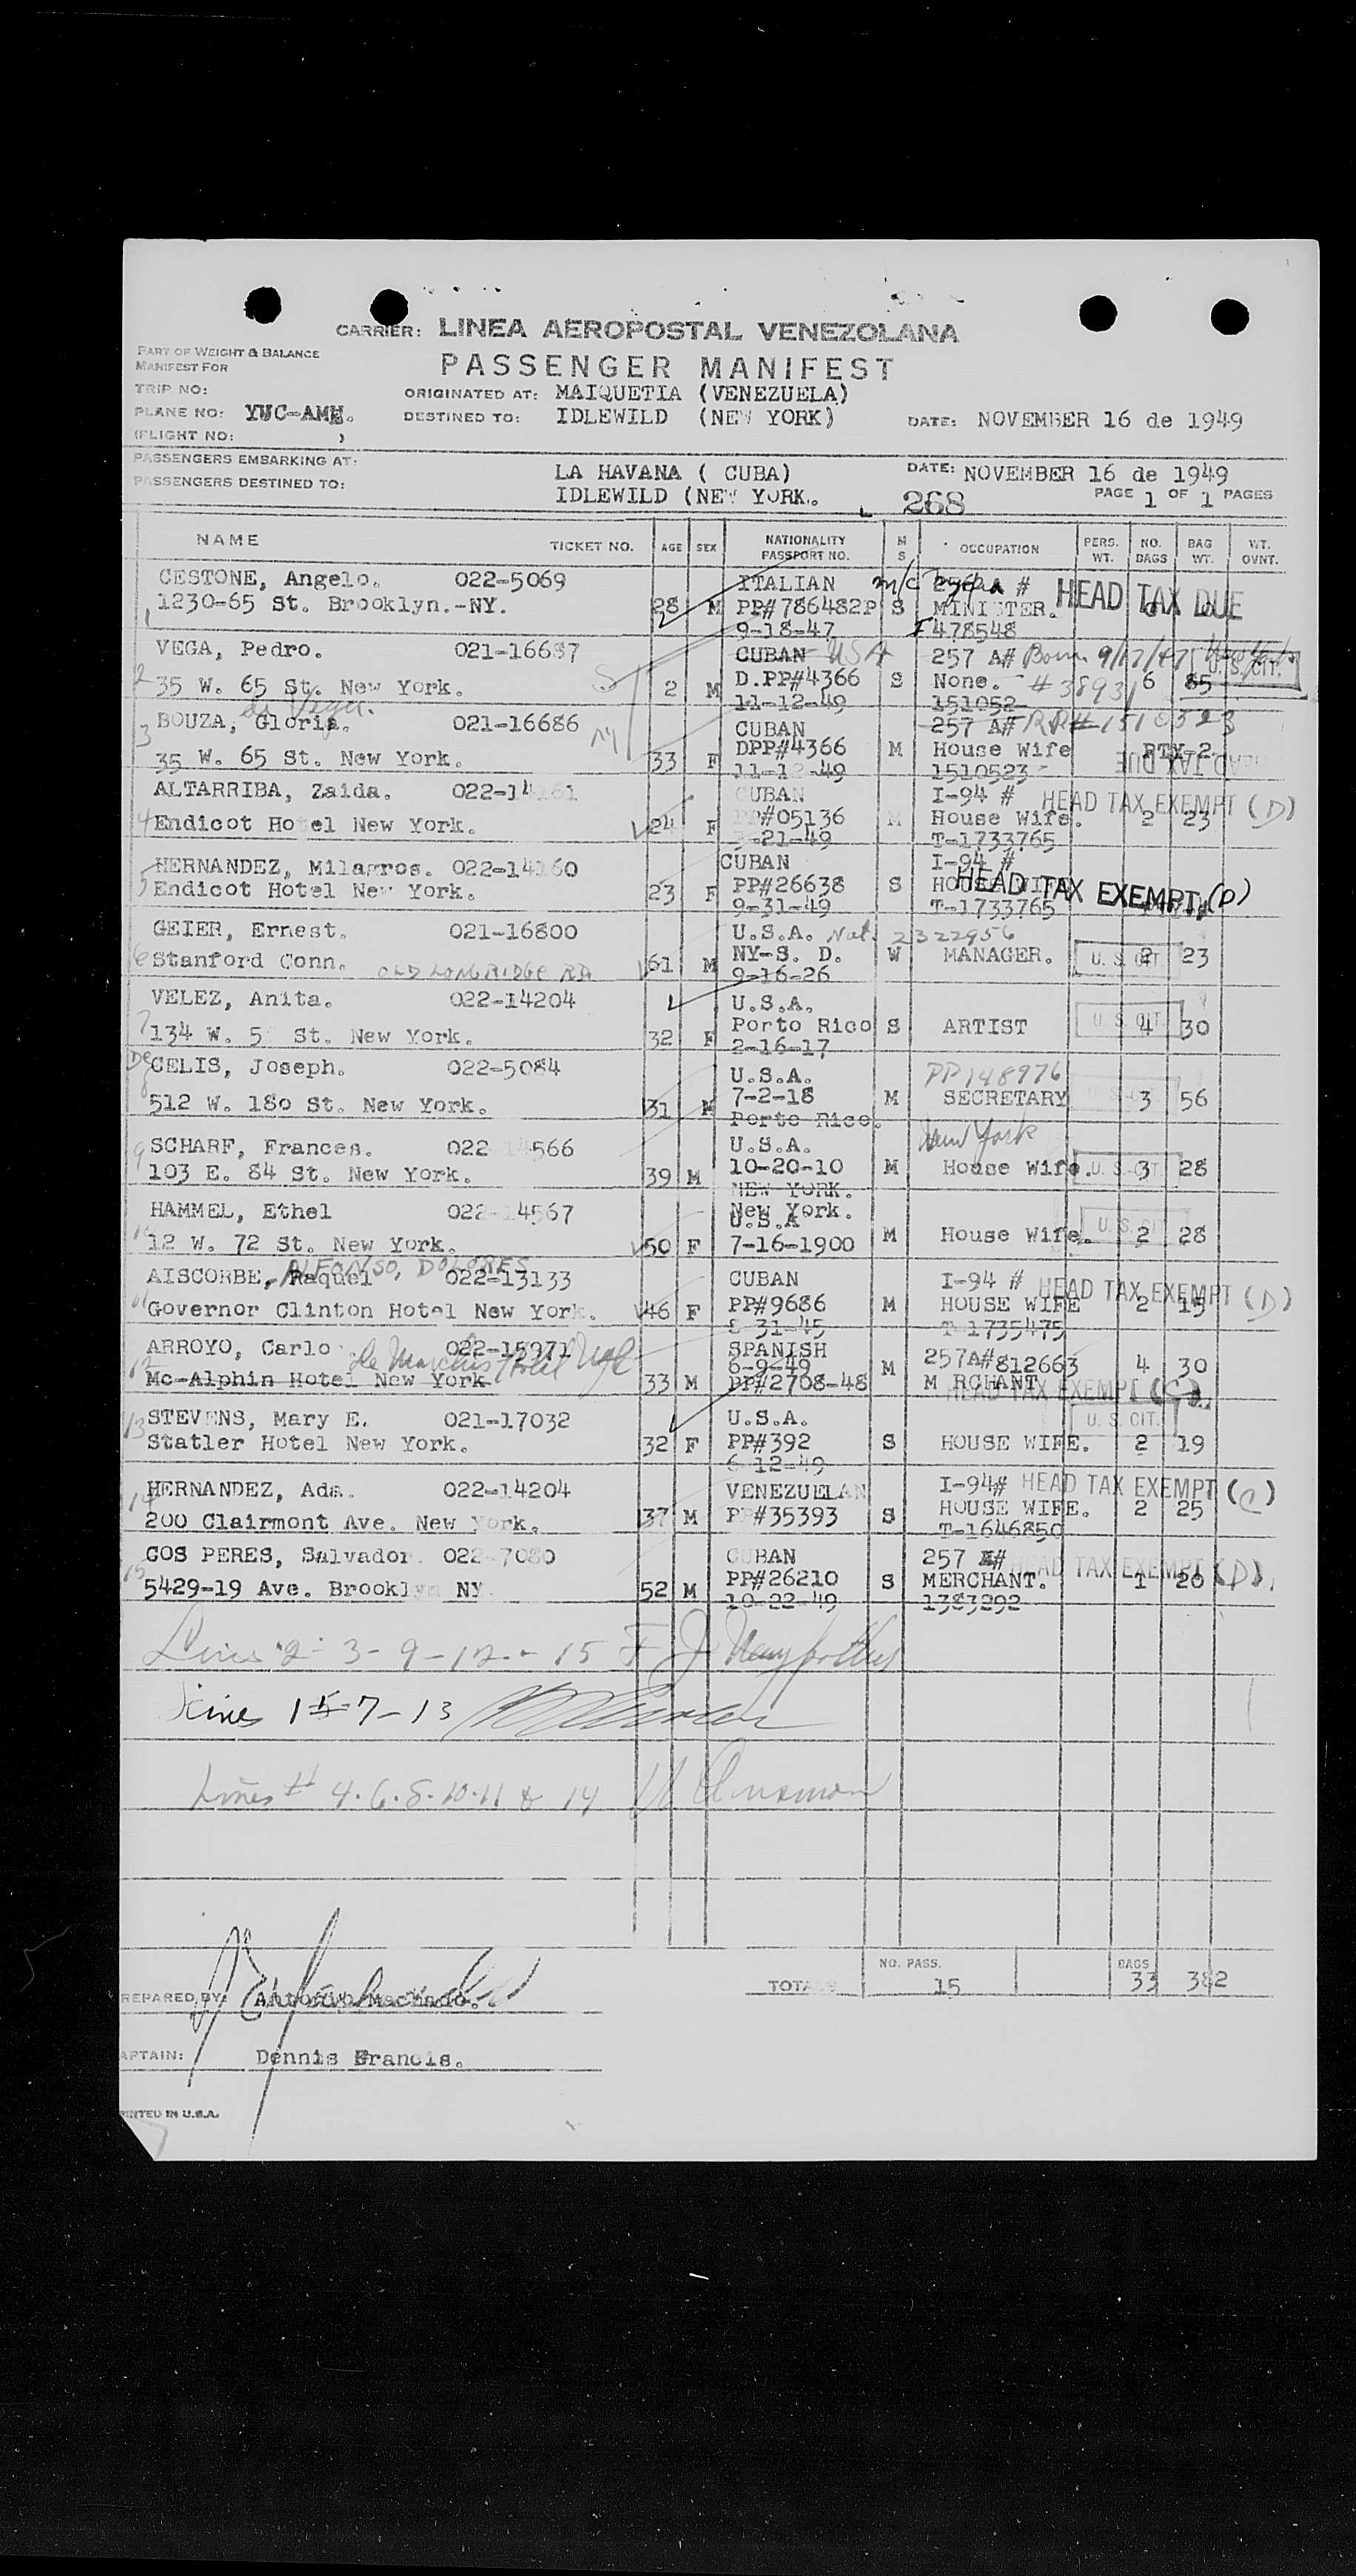 CARRIER: LINEA AEROPOSTAL VENEZOLANA
PART OF WEIGHT & BALANCE
MANIFEST FOR
PASSENGER MANIFEST
TRIP NO:
ORIGINATED AT: MAIQUETIA (VENEZUELA)
PLANE NO: YVC-AMH.
DESTINED TO: IDLEWILD (NEW YORK)
DATE: NOVEMBER 16 de 1949
(FLIGHT NO: )
PASSENGERS EMBARKING AT: LA HAVANA ( CUBA) DATE: NOVEMBER 16 de 1949
PASSENGERS DESTINED TO: IDLEWILD (NEW YORK. 268 PAGE 1 OF 1 PAGES
NAME TICKET NO. AGE SEX NATIONALITY PASSPORT NO. M S OCCUPATION PERS. WT. NO. BAGS BAG WT. WT. OVNT.
CESTONE, Angelo. 022-5069 ITALIAN # HEAD TAX DUE
1 1230-65 St. Brooklyn.-NY. 28 M PP#786482P S MINISTER.
9-18-47 478548
VEGA, Pedro. 021-16687 CUBAN USA 257 A# Born 9/17/47 U. S. CIT.
2 35 W. 65 St. New York. 2 M D.PP#4366 S None. #38931 6 85
11-12-49 151052
de Vega.
BOUZA, Gloria. 021-16686 CUBAN 257 A# RP# 1510523
3 35 W. 65 St. New York. NY 33 F DPP#4366 M House Wife PTY-2 HEAD TAX DUE
11-1 -49 1510523
ALTARRIBA, Zaida. 022-14161 CUBAN I-94 # HEAD TAX EXEMPT (D)
4 Endicot Hotel New York. 24 F PP#05136 M House Wife. 2 23
-21-49 T-1733765
HERNANDEZ, Milagros. 022-14160 CUBAN I-94 #
5 Endicot Hotel New York. 23 F PP#26638 S HOUSE WIFE HEAD TAX EXEMPT (D)
9-31-49 T-1733765
GEIER, Ernest. 021-16800 U.S.A. Nat. 2322956
6 Stanford Conn. OLD LONG RIDGE RD 61 M NY-S. D. W MANAGER. U. S. CIT. 2 23
9-16-26
VELEZ, Anita. 022-14204 U.S.A.
7 134 W. 5 St. New York. 32 F Porto Rico S ARTIST U. S. CIT. 4 30
2-16-17
De CELIS, Joseph. 022-5084 U.S.A. PP148976
8 512 W. 180 St. New York. 31 M 7-2-18 M SECRETARY U. S. CIT. 3 56
Porto Rico.
9 SCHARF, Frances. 022-14566 U.S.A. New York
103 E. 84 St. New York. 39 M 10-20-10 M House Wife. U. S. CIT. 3 28
NEW YORK.
HAMMEL, Ethel 022-14567 New York. U.S.A
10 12 W. 72 St. New York. 50 F 7-16-1900 M House Wife. U. S. CIT. 2 28
ALFONSO, DOLORES
AISCORBE, Raquel 022-13133 CUBAN I-94 # HEAD TAX EXEMPT (D)
11 Governor Clinton Hotel New York. 46 F PP#9686 M HOUSE WIFE 2 15
8-31-45 T-1735475
ARROYO, Carlo 022-15971 SPANISH 257A#812663 4 30
12 Mc-Alphin Hotel New York 33 M 6-9-49 PP#2708-48 M M RCHANT HEAD TAX EXEMPT (C)
13 STEVENS, Mary E. 021-17032 U.S.A. U. S. CIT.
Statler Hotel New York. 32 F PP#392 S HOUSE WIFE. 2 19
6-12-49
14 HERNANDEZ, Ada. 022-14204 VENEZUELAN I-94# HEAD TAX EXEMPT (C)
200 Clairmont Ave. New York. 37 M PP#35393 S HOUSE WIFE. 2 25
T-1646850
COS PERES, Salvador. 022-7080 CUBAN 257 # HEAD TAX EXEMPT (D)
15 5429-19 Ave. Brooklyn NY. 52 M PP#26210 S MERCHANT. 1 20
10-22-49 1383292
Line 2-3-9-12-15 F J
Lines 1 5-7-13
Lines # 4.6.8.10.11 & 14
TOTALS NO. PASS. 15 BAGS 33 382
REPARED BY: Antonio Machado.
APTAIN: Dennis Francis.
INTED IN U.S.A.